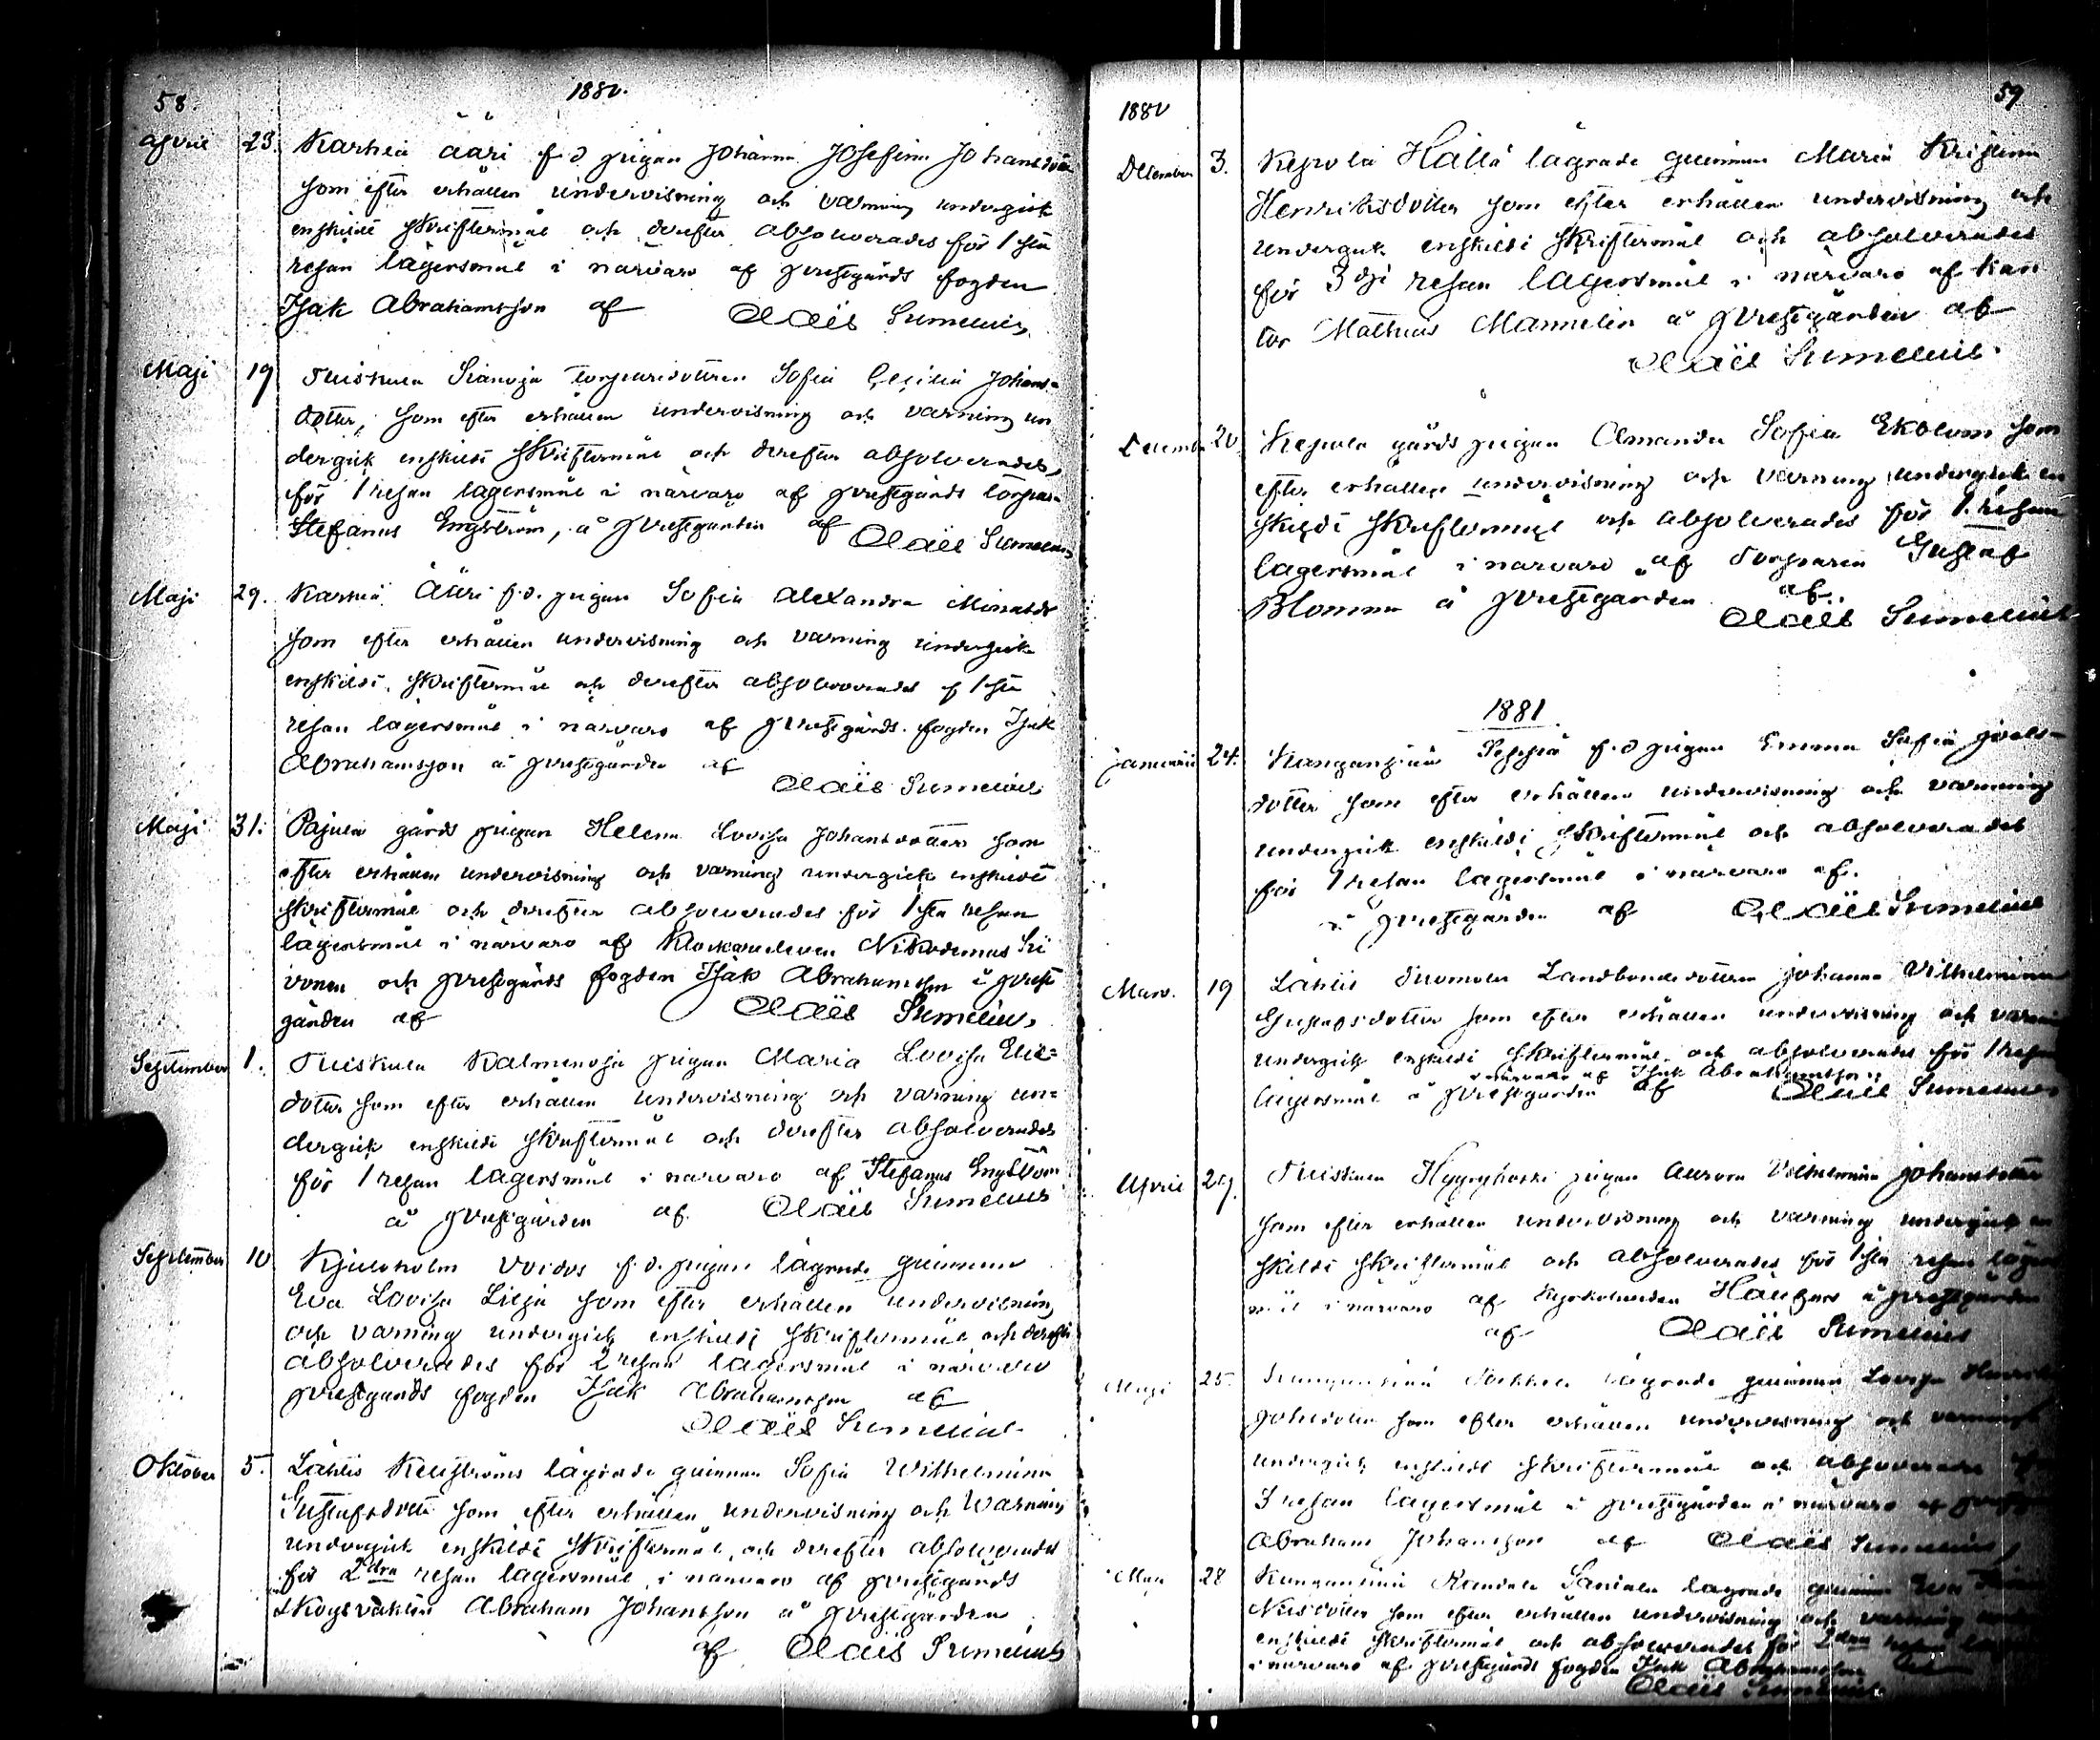 58. 1880.
April 23. Karhiä Ääri f d pigan Johanna Josefina Johansdr
som efter erhållen undervisning och varning undergick
enskildt skriftermål och derefter absolverades för 1sta
resan lägersmål i närvaro af prestgårds fogden
Isak Abrahamsson af Olais Sumelius
Maji 19 torparedottren Sofia Cecilia Johans-
dotter, som efter erhållen undervisning och varning un
dergick enskildt skriftermål och derefter absolverades,
för 1 resan lägersmål i närvaro af prestgårds torpar-
Stefanus Engström, å prestgården af Olais Sumelius
Maji 29. Karhiä Ääri f.d. pigan Sofia Alexandra
som efter erhållen undervisning och varning undergick
enskildt skriftermål och derefter absolverades f 1sta
resan lägersmål i närvaro af prestgårds fogden Isak
Abrahamsson å prestgården af
Olais Sumelius
Maji 31. Pajula gårds pigan Helena Lovisa Johansdotter som
efter erhållen undervisning och varning undergick enskildt
skriftermål och derefter absolverades för 1sta resan
lägersmål i närvaro af Klockareleven Nikodemus Sii
vonen och prestgårds fogden Isak Abrahamsson å prest
gården af Olais Sumelius
September 1. Tuiskula Kalmenoja pigan Maria Lovisa Elie=
dotter som efter erhållen undervisning och varning un=
dergick enskildt skriftermål och derefter absolverades
för 1 resan lägersmål i närvaro af Stefanus Engström
å prestgården af Olais Sumelius
September 10 Kjuloholm Voidas f.d. pigan lägrade qvinnan
Eva Lovisa Lilja som efter erhållen undervisning
och varning undergick enskildt skriftermål och derefter
absolverades för 2 resan lägersmål i närvaro
prestgårds fogden Isak Abrahamsson af
Olais Sumelius
Oktober 5. Lähtis lägrade qvinnan Sofia Wilhelmina
Gustafsdotter som efter erhållen undervisning och Warning
undergick enskildt skriftermål, och derefter absolverades
för 2dra resan lägersmål, i närvaro af prestgårds
skogsvakten Abraham Johansson å prestgården
af Olais Sumelius
1880 59
December 3. Kepola Hälla lägrade qvinnan Maria Kristina
Henriksdotter som efter erhållen undervisning och
undergick enskildt skriftermål och absolverades
för 3dje resan lägersmål i närvaro af Kan
tor Matthias Mannelin å prestgården af
Olais Sumelius.
December 20. Kepola gårds pigan Amanda Sofia Ekblom som
efter erhållen undervisning och varning undergick en
skildt skriftermål och absolverades för 1. resan
lägersmål i närvaro af Torparen Gustaf
Blomma å prestgården af.
Olais Sumelius
1881.
Januarii 24. Kanganpää Seppä f.d pigan Emma Sofia Joels-
dotter som efter erhållen undervisning och varning
undergick enskildt skriftermål och absolverades
för 1 resan lägersmål i närvaro af.
å prestgården af Olais Sumelius
Mars. 19 Lähtis Tuomola Landbondedottren Johanna Vilhelmina
Gustafsdotter som efter erhållen undervisning och varnin
undergick enskildt skriftermål och absolverades för 1 resan
i närvaro af Isak Abrahamsson
lägersmål å prestgården af Olais Sumelius
April 29. Hygryhoski pigan Aurora Vilhelmina Johansdotter
som efter erhållen undervisning och varning undergick en
skildt skriftermål och absolverades för 1sta resan lägers
mål i närvaro af å prestgården
af Olais Sumelius
Maji 25 lägrade qvinnan Lovisa
som efter erhållen undervisning och varning
undergick enskildt skriftermål och absolverades
3 resan lägersmål i prestgården i närvaro af
Abraham Johansson af Olais Sumelius
28 lägrade qvinnan Eva
Nilsdotter som efter erhållen undervisning och varning
enskildt skriftermål och absolverades för 2dra resan
i närvaro af prestgårds fogden Isak Abrahamsson
Olais Sumelius